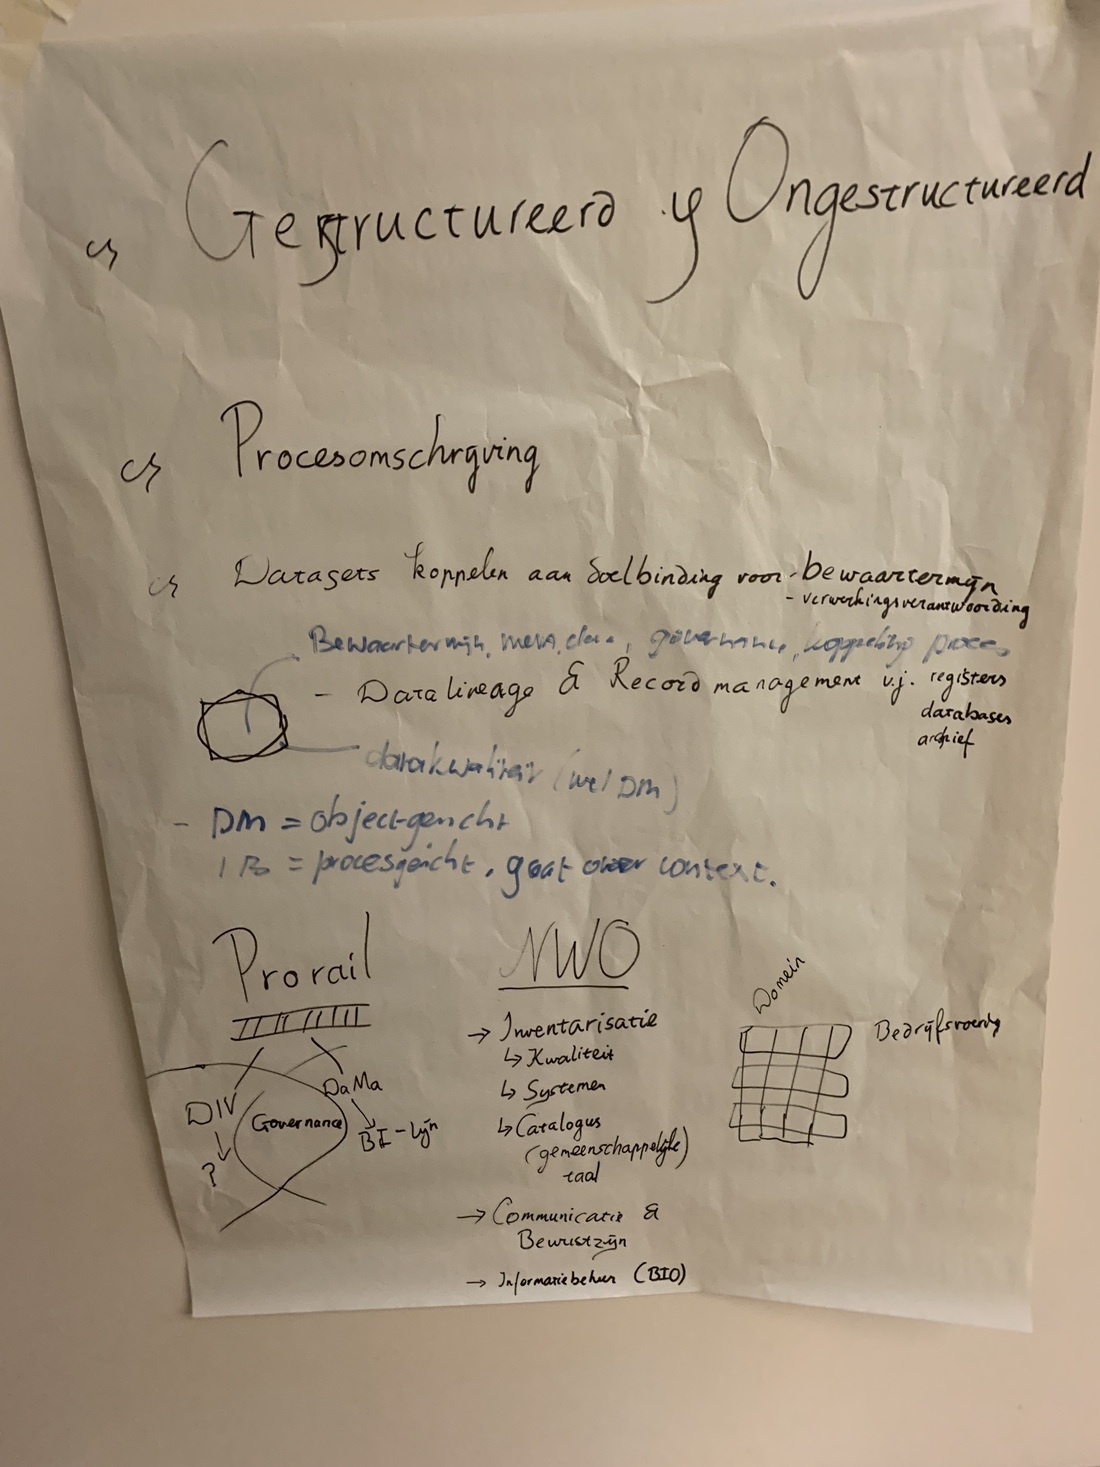 Gestructureerd y Ongestructureerd
Procesomschrijving
Datasets koppelen aan doelbinding voor - bewaartermijn
- verwerkingsverantwoording
Bewaartermijn, meta data, governance, koppeling proces
- Data lineage & Record management v.j. registers
databases
archief
datakwaliteit (wel DM)
- DM = objectgericht
IB = procesgericht, gaat over context.
Prorail
DIV
?
Governance
DaMa
BI-lijn
NWO
→ Inventarisatie
↳ Kwaliteit
↳ Systemen
↳ Catalogus
(gemeenschappelijke)
taal
→ Communicatie &
Bewustzijn
→ Informatiebeheer (BIO)
Domein
Bedrijfsvoering